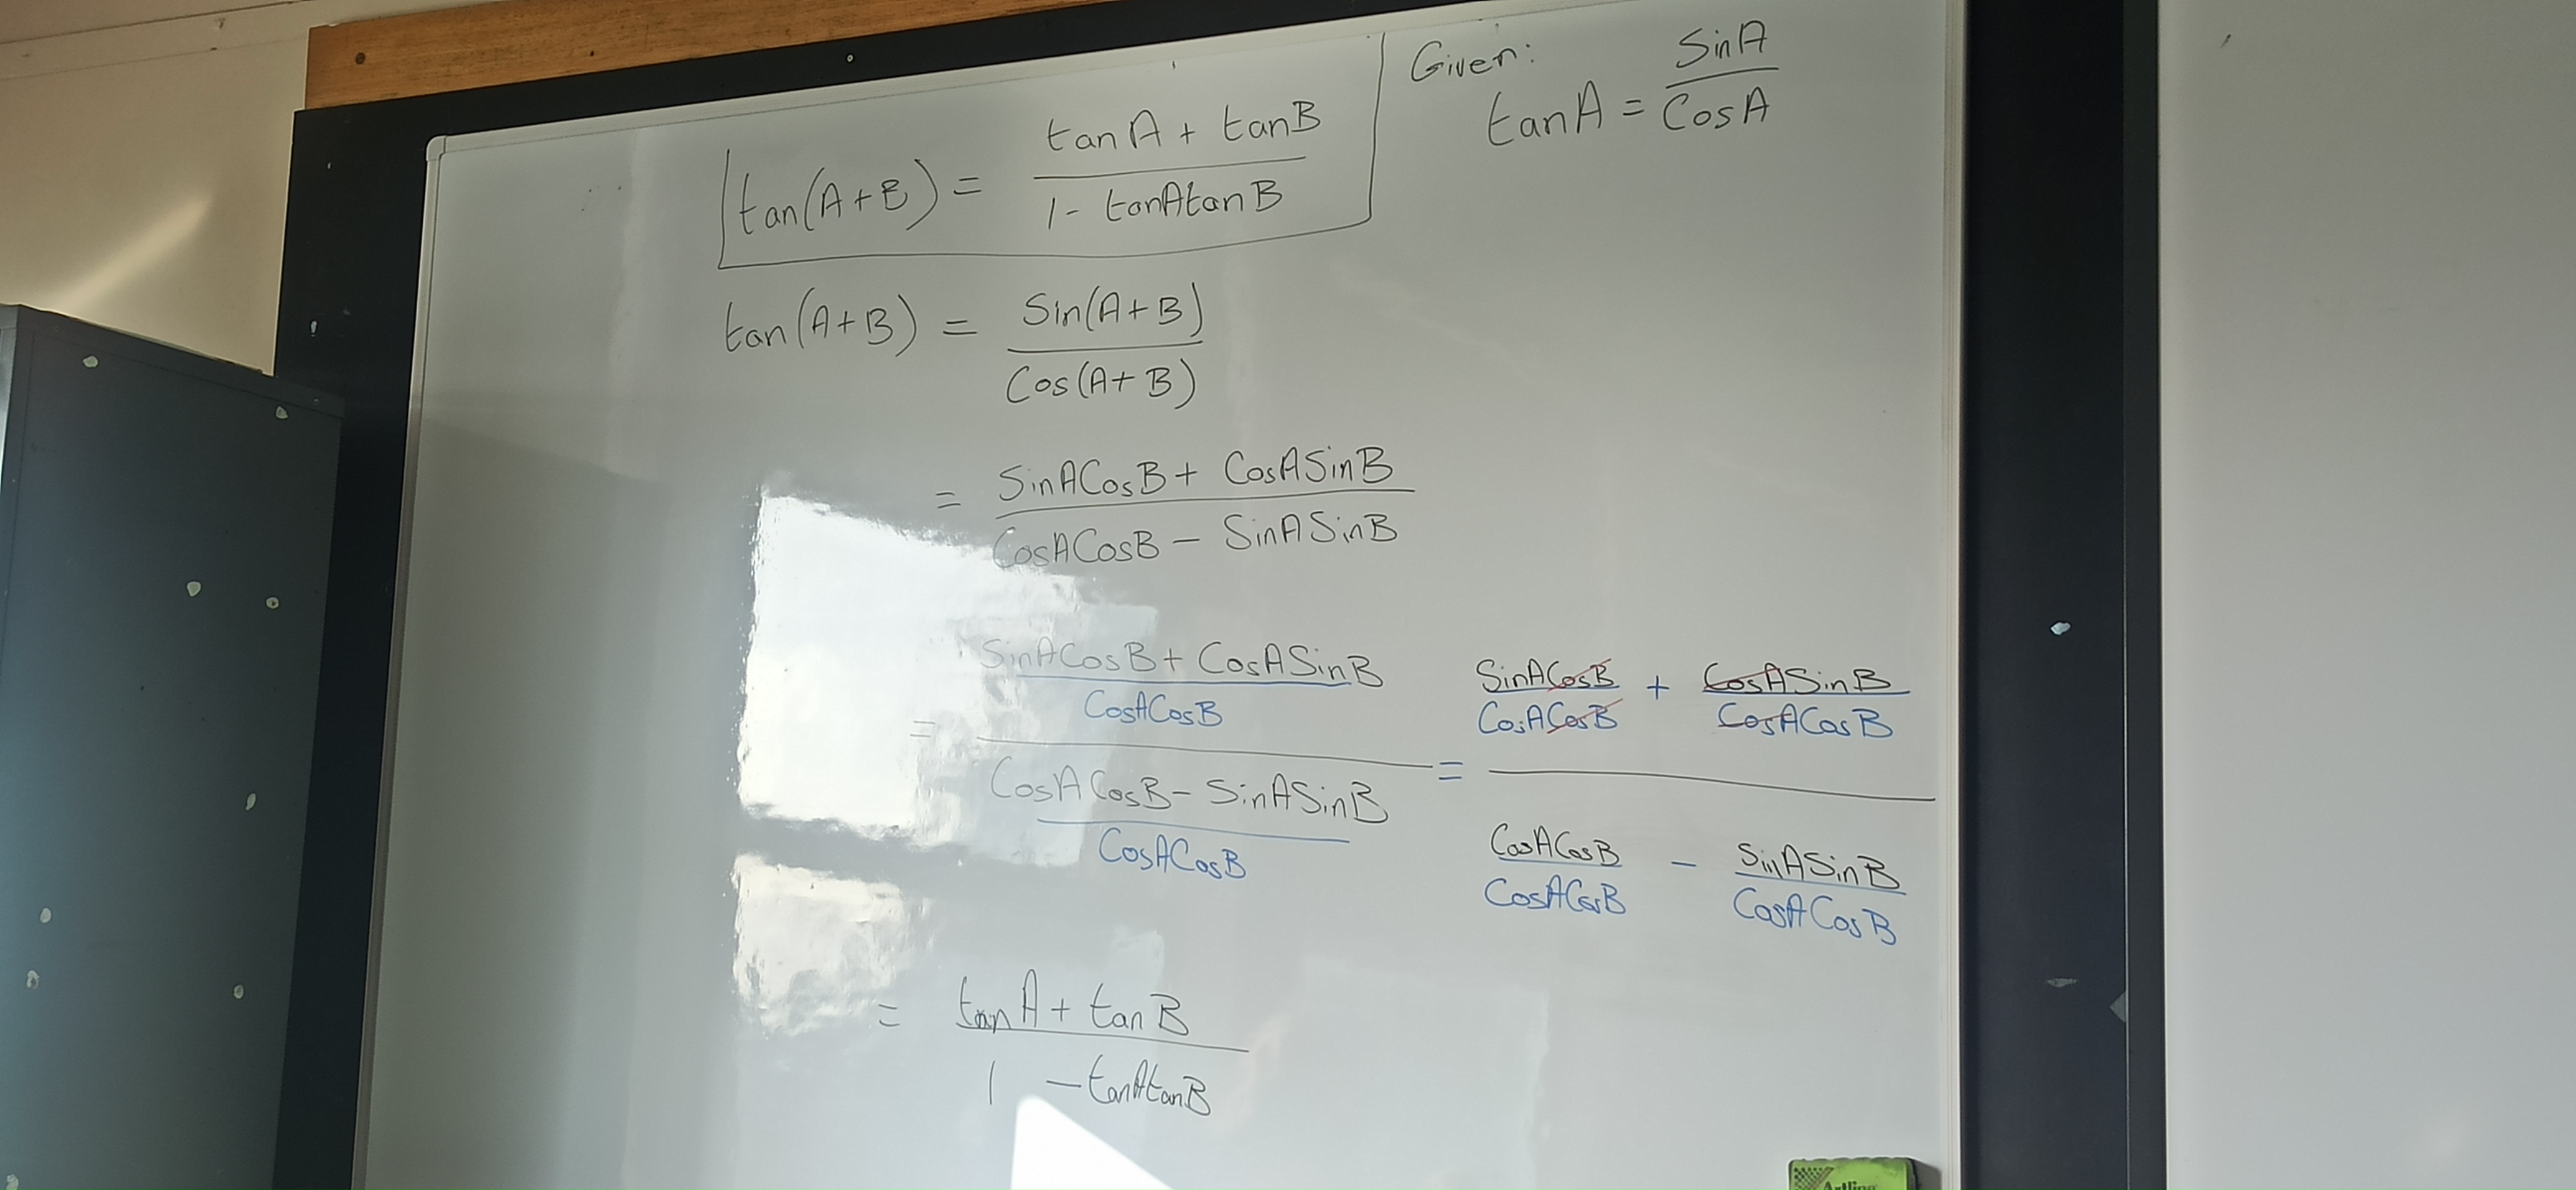 Given:
tanA = SinA / CosA
tan(A+B) = tanA + tanB / 1 - tanAtanB
tan(A+B) = Sin(A+B) / Cos(A+B)
= SinACosB + CosASinB / CosACosB - SinASinB
= SinACosB + CosASinB / CosACosB / CosACosB - SinASinB / CosACosB = SinACosB / CosACosB + CosASinB / CosACosB / CosACosB / CosACosB - SinASinB / CosACosB
= tanA + tanB / 1 - tanAtanB
Artline